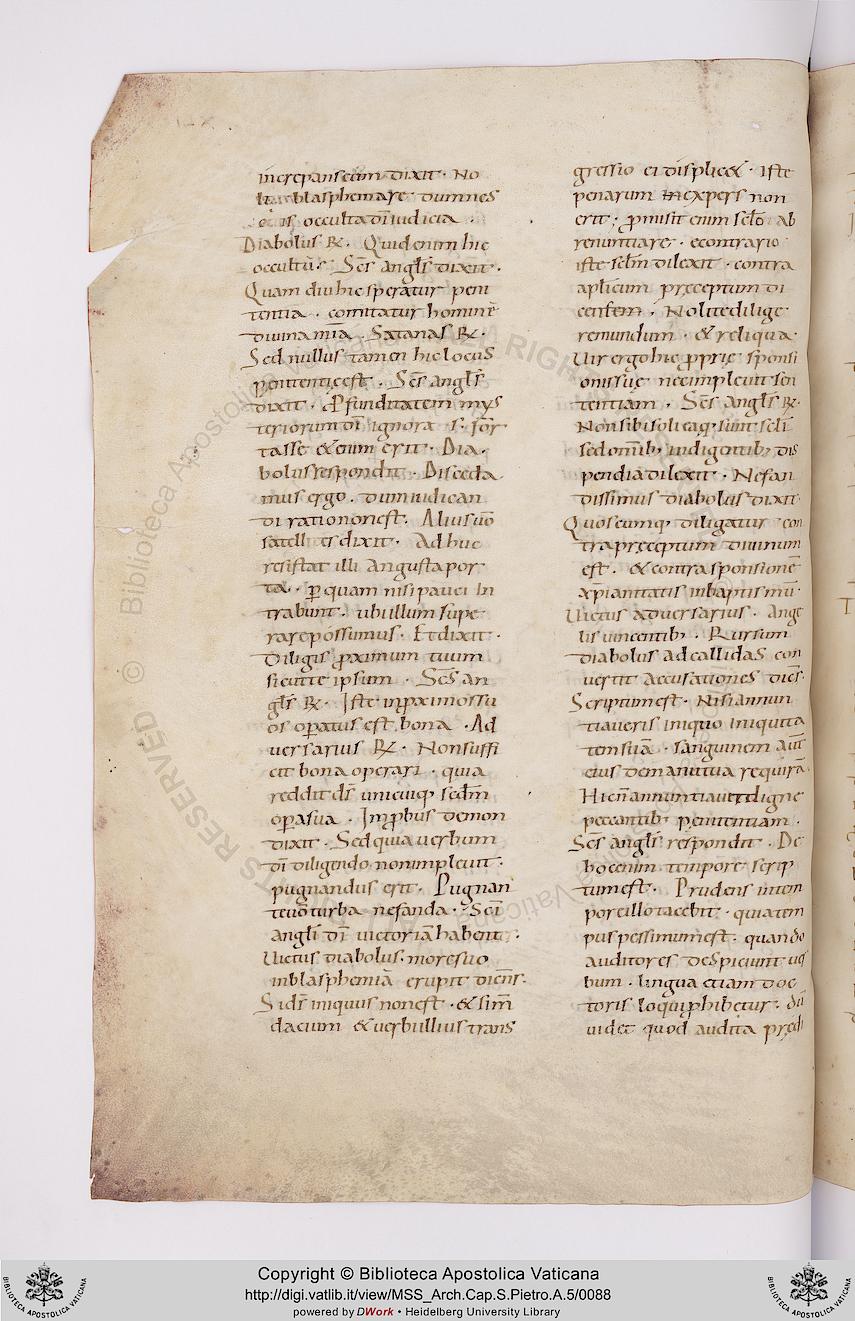 increpans eum dixit · No
li blasphemare dum nes
cis occulta dī iudicia ·
Diabolus R̄ · Quid enim hic
occultū · Sc̄s angl̄s dixit ·
Quam diu hic speratur peni
tentia · comitatur hominē
diuina mīa · Satanas R̄ ·
Sed nullus tamen hic locus
penitentię est · Sc̄s angl̄s
dixit · P̱funditatem mys
teriorum dī ignoras · for
tasse & enim erit · Dia
bolus respondit · Disceda
mus ergo · dum iudican
di ratio non est · Alius uō
satelles dixit · Ad huc
restat illi angusta por
ta · ꝑ quam nisi pauci in
trabunt · ubi illum supe
rare possumus · Et dixit ·
Diligis ꝓximum tuum
sicut te ipsum · Sc̄s an
gl̄s R̄ · Iste in ꝓximos su
os oꝑatus est bona · Ad
uersarius R̄ · Non suffi
cit bona operari · quia
reddit ds̄ unicuiq; secdm̄
oꝑa sua · Imꝓbus demon
dixit · Sed quia uerbum
dī diligendo non impleuit ·
pugnandus erit · Pugnan
te uō turba nefanda · Sc̄i
angl̄i dī uictoriā habent ·
Uictus diabolus · more suo
in blasphemiā erupit dicēns ·
Si ds̄ iniquus non est · & sim̄
dacium & uerbi illius trans
gressio ei displic& · Iste
penarum inexpers non
erit · ꝓmisit enim sclō ab
renuntiare · econtrario
iste sclm̄ dilexit · contra
aplicum pręceptum di
centem · Nolite dilige
re mundum · & reliqua ·
Uir ergo hic ꝓprię sponsi
onis suę nec impleuit sen
tentiam · Sc̄s angl̄s R̄ ·
Non sibi soli ea q̄ sunt scl̄i
sed omīb; indigentib; dis
pendia dilexit · Nefan
dissimus diabolus dixit
Quoscumq; diligatur con
tra pręceptum diuinum
est · & contra sponsionē
xp̄ianitatis in baptismū ·
Uictus aduersarius · ange
lis uincentib; · Rursum
diabolus ad callidas con
uertit accusationes dicēs ·
Scriptum est · Nisi annun
tiaueris iniquo iniquita
tem suā · sanguinem aūt
eius de manu tua requirā ·
Hic n̄ annuntiauit digne
peccantib; penitentiam ·
Sc̄s angl̄s respondit · De
hoc enim tempore scrip
tum est · Prudens in tem
pore illo tacebit · quia tem
pus pessimum est · quando
auditores despiciunt uer
bum · lingua etiam doc
toris loqui ꝓhibetur · dū
uidet quod audita prędi
Copyright © Biblioteca Apostolica Vaticana
http://digi.vatlib.it/view/MSS_Arch.Cap.S.Pietro.A.5/0088
powered by DWork • Heidelberg University Library